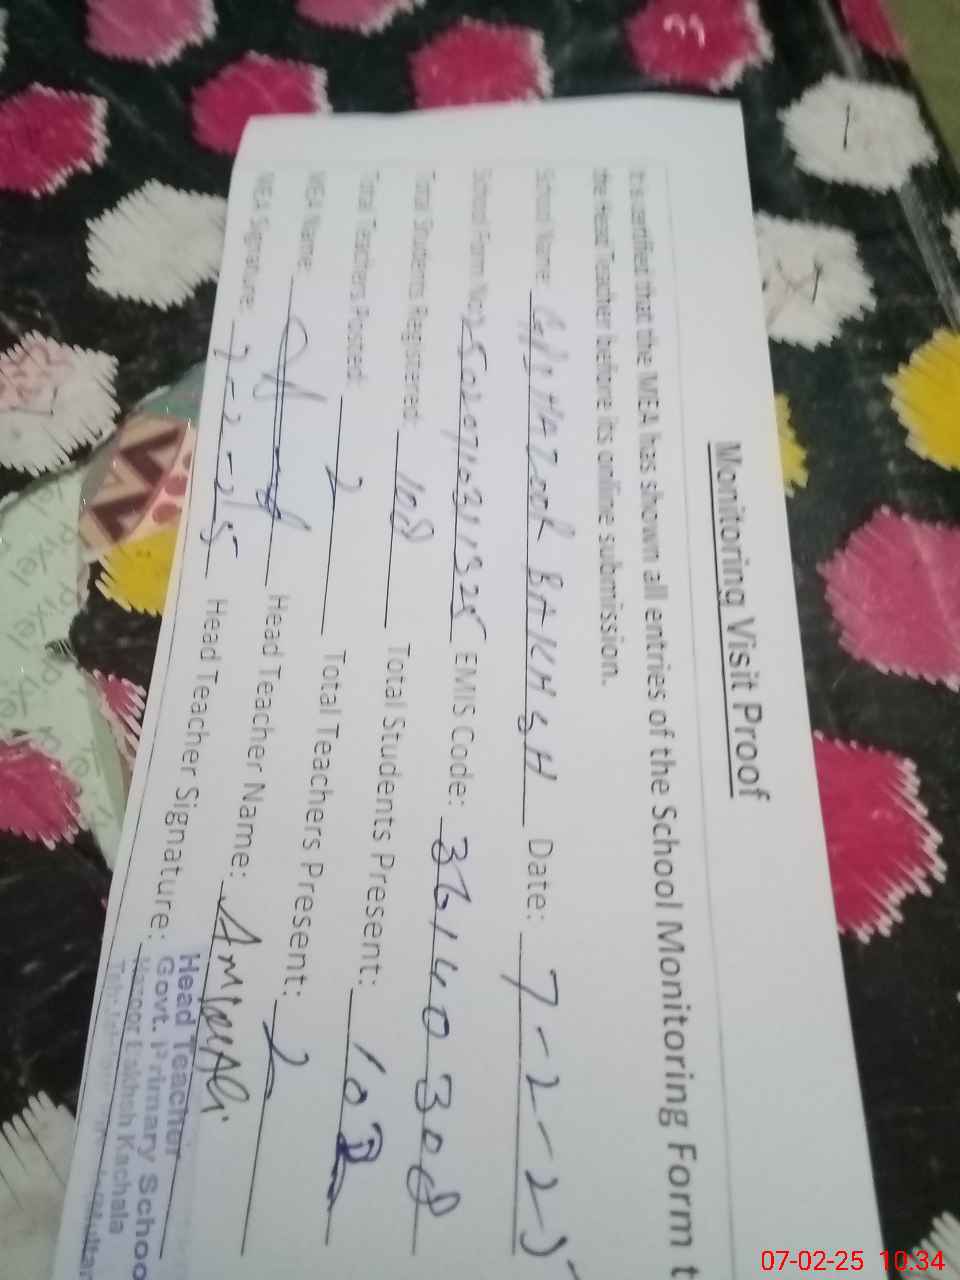 Monitoring Visit Proof
It is certified that the MEA has shown all entries of the School Monitoring Form t
the Head Teacher before its online submission.
School Name: GPS HAZOOR BAKHSH Date: 7-2-25
School Form No: EMIS Code: 36140308
Total Students Registered: 108 Total Students Present:
Total Teachers Posted: 2 Total Teachers Present: 2
MEA Name: Head Teacher Name: Amjad Ali
MEA Signature: 7-2-25 Head Teacher Signature:
Head Teacher
Govt. Primary Schoo
Hazoor Bakhsh Kachala
07-02-25 10:34